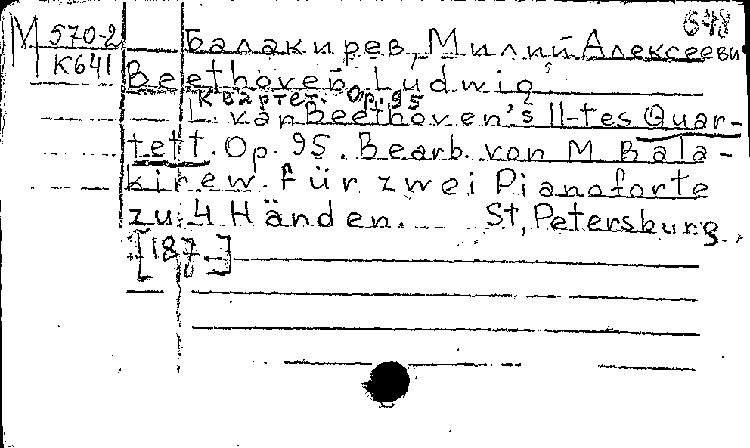 648
М 570-2
К641
Балакирев, Милий Алексееви
Beethoven, Ludwig
Квартет. Op. 95
L. van Beethoven's 11-tes Quar-
tett. Op. 95. Bearb. von M Bala-
kirew. für zwei Pianoforte
zu 4 Händen. St, Petersburg.
[187 ]